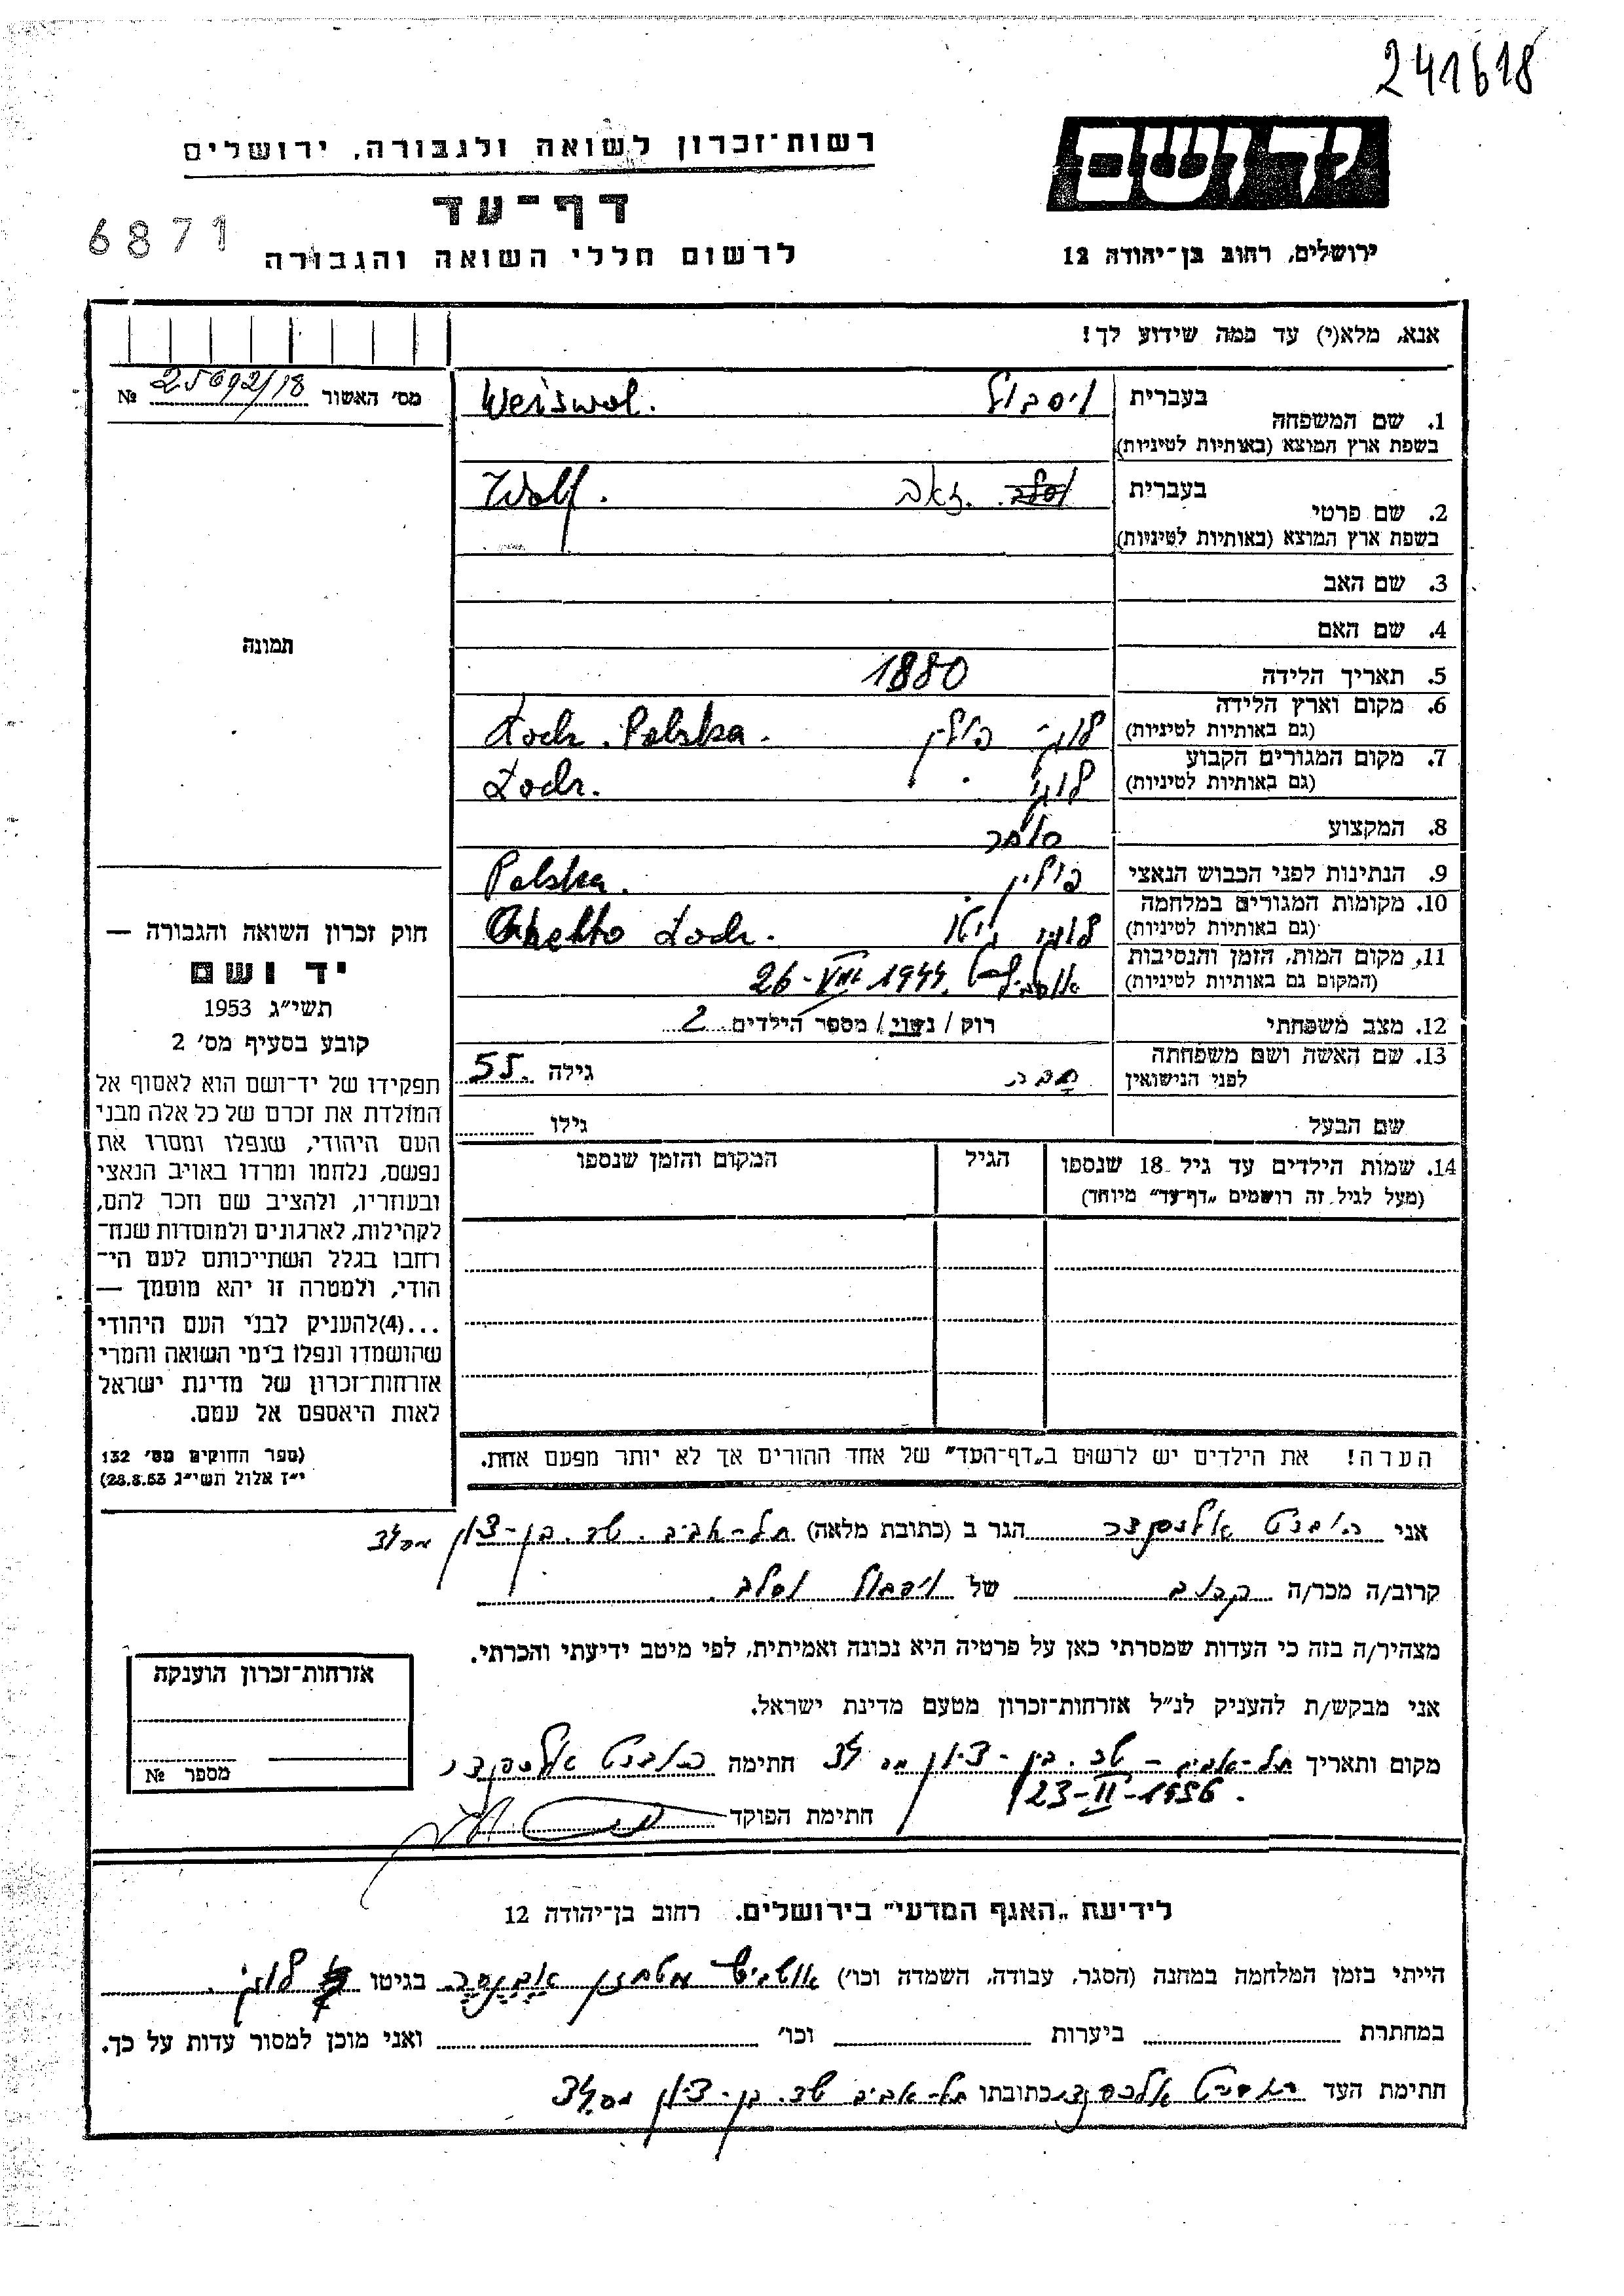 241618
יד ושם
רשות־זכרון לשואה ולגבורה, ירושלים
דף־עד
לרשום חללי השואה והגבורה
6871
ירושלים, רחוב בן־יהודה 12
אנא, מלא(י) עד כמה שידוע לך!
מס׳ האשור 25692/18 №
תמונה
1. שם המשפחה בעברית ויסבול Weiswol.
בשפת ארץ המוצא (באותיות לטיניות)
2. שם פרטי בעברית זאב Wolf.
בשפת ארץ המוצא (באותיות לטיניות)
3. שם האב
4. שם האם
5. תאריך הלידה 1880
6. מקום וארץ הלידה לודז׳ פולין Łodz. Polska.
(גם באותיות לטיניות)
7. מקום המגורים הקבוע לודז׳ Łodz.
(גם באותיות לטיניות)
8. המקצוע סוחר
9. הנתינות לפני הכבוש הנאצי פולין. Polska.
10. מקומות המגורים במלחמה לודז׳ גיטו Ghetto Łodz.
(גם באותיות לטיניות)
11. מקום המות, הזמן והנסיבות 26-VIII 1944
(המקום גם באותיות לטיניות)
12. מצב משפחתי רוק / נשוי / מספר הילדים 2
13. שם האשה ושם משפחתה גילה 55
לפני הנישואין
שם הבעל גילו
14. שמות הילדים עד גיל 18 שנספו הגיל המקום והזמן שנספו
(מעל לגיל זה רושמים „דף־עד״ מיוחד)
הערה! את הילדים יש לרשום ב„דף־העד״ של אחד ההורים אך לא יותר מפעם אחת.
חוק זכרון השואה והגבורה —
יד ושם
תשי״ג 1953
קובע בסעיף מס׳ 2
תפקידו של יד־ושם הוא לאסוף אל
המולדת את זכרם של כל אלה מבני
העם היהודי, שנפלו ומסרו את
נפשם, נלחמו ומרדו באויב הנאצי
ובעוזריו, ולהציב שם וזכר להם,
לקהילות, לארגונים ולמוסדות שנח־
רחבו בגלל השתייכותם לעם הי־
הודי, ולמטרה זו יהא מוסמך —
...(4)להעניק לבני העם היהודי
שהושמדו ונפלו בימי השואה והמרי
אזרחות־זכרון של מדינת ישראל
לאות היאספם אל עמם.
(ספר החוקים מס׳ 132
י״ז אלול תשי״ג 28.8.53)
אני אלכסנדר הגר ב (כתובת מלאה) תל-אביב. בן-ציון
קרוב/ה מכר/ה קרוב של ויסבול
מצהיר/ה בזה כי העדות שמסרתי כאן על פרטיה היא נכונה ואמיתית, לפי מיטב ידיעתי והכרתי.
אני מבקש/ת להעניק לנ״ל אזרחות־זכרון מטעם מדינת ישראל.
מקום ותאריך תל-אביב - בן-ציון חתימה אלכסנדר
23-II-1956.
חתימת הפוקד
אזרחות־זכרון הוענקה
מספר №
לידיעת „האגף המדעי״ בירושלים. רחוב בן־יהודה 12
הייתי בזמן המלחמה במחנה (הסגר, עבודה, השמדה וכו׳) בגיטו לודז׳.
במחתרת ביערות וכו׳ ואני מוכן למסור עדות על כך.
חתימת העד אלכסנדר כתובתו תל-אביב בן-ציון